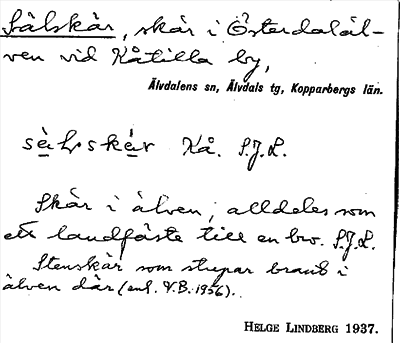 Sälskär, skär i Österdaläl-
ven vid Kåtilla by,
Älvdalens sn, Älvdals tg, Kopparbergs län.
Kå. S.J.L.
Skär i älven, alldeles som
ett landfäste till en bro. S.J.L.
Stenskär som stupar brant i
älven där (enl. V.B. 1956).
HELGE LINDBERG 1937.